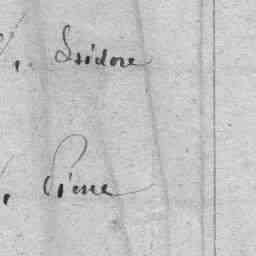 Isidore
Pierre